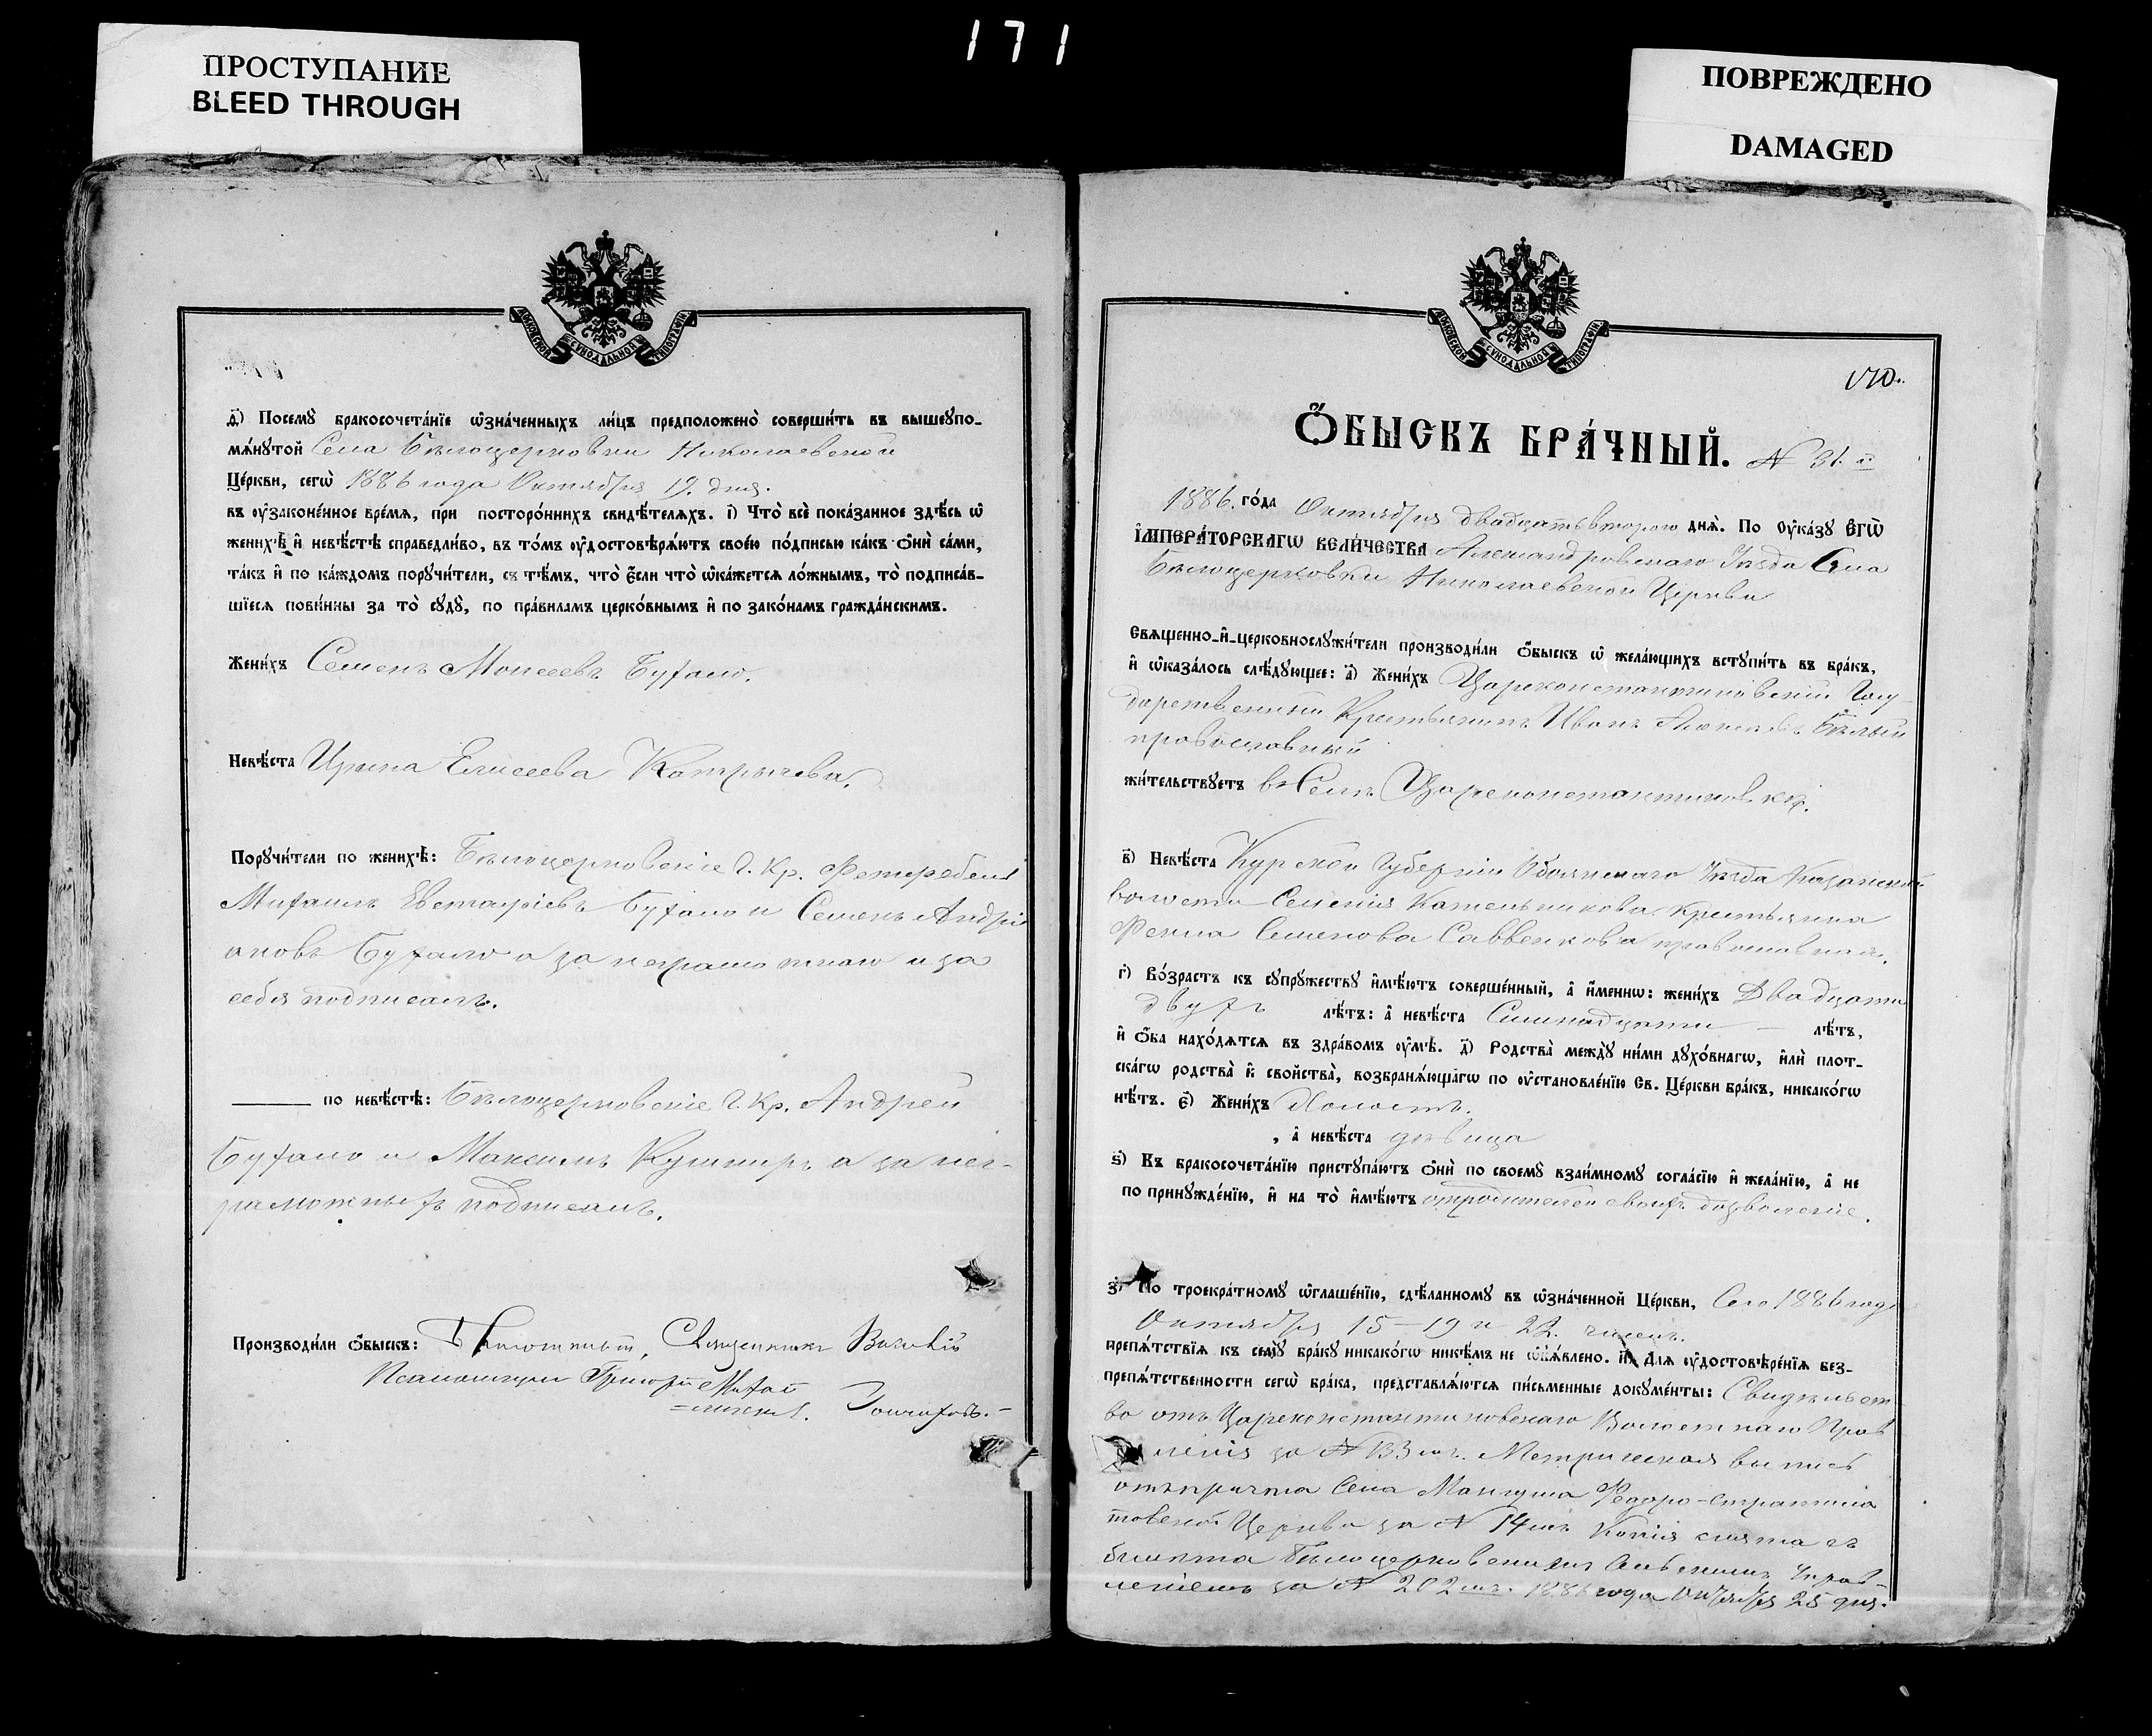 171
ПРОСТУПАНИЕ
BLEED THROUGH
ПОВРЕЖДЕНО
DAMAGED
МОСКОВСКОЙ СѴНОДАЛЬНОЙ ТИПОГРАФІИ
д҃) Посемꙋ̀ бракосочета́нїе ѡ҆зна́ченныхъ ли́цъ предположено̀ соверши́ть въ вышеꙋпо-
мѧ́нꙋтой Села Бѣлоцерковки Николаевской
Це́ркви, сегѡ̀ 1886 года Октября 19. дня.
въ ᲂу҆зако́ненное вре́мѧ, при посторо́ннихъ свидѣ́телѧхъ. і҃) Что̀ всѐ пока́занное здѣ́сь ѡ҆
женихѣ̀ и҆ невѣ́стѣ справедли́во, въ то́мъ ᲂу҆достовѣрѧ́ютъ свое́ю по́дписью ка́къ ѻ҆нѝ са́ми,
та́къ и҆ по ка́ждомъ порꙋчи́тели, съ тѣ́мъ, что̀ є҆́сли что̀ ѡ҆ка́жетсѧ ло́жнымъ, то̀ подписа́в-
шїесѧ пови́нны за то̀ сꙋдꙋ̀, по пра́виламъ церко́внымъ и҆ по зако́намъ гражда́нскимъ.
Жени́хъ Семенъ Моисеевъ Бухало.
Невѣ́ста Ирина Елисеева Катрычева.
Порꙋчи́тели по женихѣ̀: Бѣлоцерковскіе Г. Кр.
Михаилъ Евстафіевъ Бухало и Семенъ Андрі
ановъ Бухало а за неграмотнаго и за
себя подписалъ.
по невѣ́стѣ: Бѣлоцерковскіе Г. Кр. Андрей
Бухало и Максимъ Кушниръ а за нег-
рамотныхъ подписалъ.
Производи́ли ѻ҆́быскъ: Священникъ
Псаломщикъ Григорій
Гончаровъ.
МОСКОВСКОЙ СѴНОДАЛЬНОЙ ТИПОГРАФІИ
170.
Ѻ҆́БЫСКЪ БРА́ЧНЫЙ. N 31.й
1886. го́да Октября двадцать второго днѧ̀. По ᲂу҆ка́зꙋ Є҆гѡ̀
І҆мпера́торскагѡ вели́чества Александровскаго Уѣзда Села
Бѣлоцерковки Николаевской Церкви
Свѧще́нно-и҆-церковнослꙋжи́тели производи́ли ѻ҆́быскъ ѡ҆ жела́ющихъ встꙋпи́ть въ бра́къ,
и҆ ѡ҆каза́лось слѣ́дꙋющее: а҃) Жени́хъ Цареконстантиновскій Госу-
дарственный Крестьянинъ Иванъ Бѣлый
православный
жи́тельствꙋетъ в Селѣ Цареконстантиновкѣ.
в҃) Невѣ́ста Курской Губерніи Обоянскаго Уѣзда Казацкой
волости Селенія Котельникова Крестьянка
Фекла Семенова Саввенкова православная.
г҃) Во́зрастъ къ сꙋпрꙋ́жествꙋ и҆мѣ́ютъ соверше́нный, а҆ и҆́меннѡ: жени́хъ Двадцати
двухъ лѣ́тъ: а҆ невѣ́ста Семнадцати — лѣ́тъ,
и҆ ѻ҆́ба нахо́дѧтсѧ въ здра́вомъ ᲂу҆мѣ̀. д҃) Родства̀ междꙋ̀ ни́ми дꙋхо́внагѡ, и҆лѝ плот-
ска́гѡ родства̀ и҆ свойства̀, возбранѧ́ющагѡ по ᲂу҆становле́нїю Св. Це́ркви бра́къ, никако́гѡ
нѣ́тъ. є҃) Жени́хъ Холостъ.
, а҆ невѣ́ста дѣвица
ѕ҃) Къ бракосочета́нїю пристꙋпа́ютъ ѻ҆нѝ по своемꙋ̀ взаи́мномꙋ согла́сїю и҆ жела́нїю, а҆ не
по принꙋжде́нїю, и҆ на то̀ и҆мѣ́ютъ отъ родителей своихъ дозволеніе.
з҃) По троекра́тномꙋ ѡ҆глаше́нїю, сдѣ́ланномꙋ въ ѡ҆зна́ченной Це́ркви, Сего 1886 года
Октября 15 — 19 и 22. чиселъ.
препѧ́тствїѧ къ семꙋ̀ бра́кꙋ никако́гѡ никѣ́мъ не ѡ҆б̾ѧ́влено. и҃) Длѧ ᲂу҆достовѣре́нїѧ без-
препѧ́тственности сегѡ̀ бра́ка, представлѧ́ютсѧ пи́сьменные докꙋме́нты: Свидѣтельст-
во отъ Цареконстантиновскаго Волостнаго Прав
ленія за N 133 мъ. Метрическая выпись
отъ причта Села Мангуша Федоро-Стратила
товской Церкви за N 14 мъ Копія снята съ
билета Бѣлоцерковскимъ Сельскимъ Управ-
леніемъ за N 202 мъ. 1886 года Октября 25 дня.